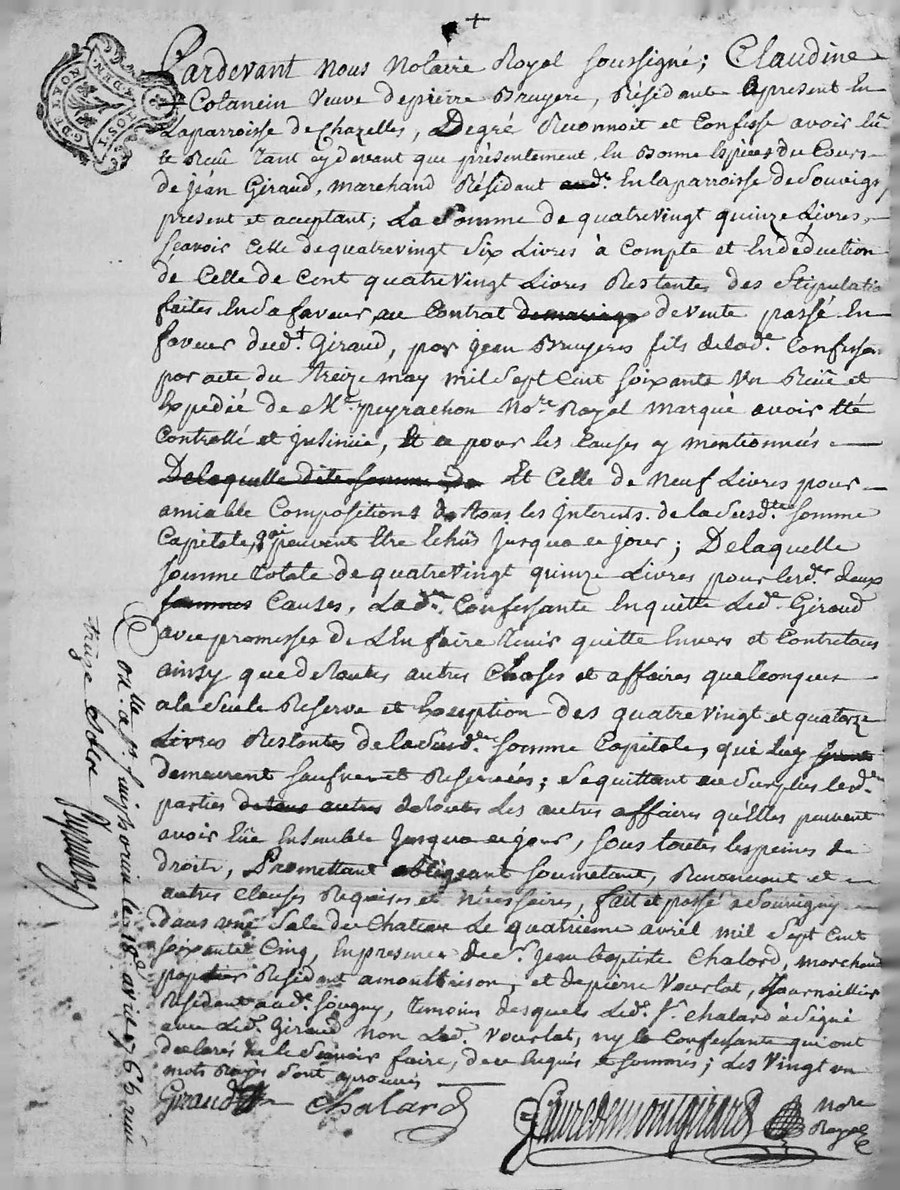 G. DE LYON
Pardevant nous Notaire Royal soussigné; Claudine
Colanein veuve de pierre Bruyere, Résidante apresent En
Laparroisse de Chazelles, De gré Reconnoit et Confesse avoir Eû
et Reçû tant cy devant que présentement En Bonne Espèces du Cours
de jean Giraud, marchand Résidant aud.t En la parroisse de Souvigny
present et acceptant; La Somme de quatrevingt quinze Livres,
sçavoir Celle de quatrevingt Six Livres à Compte et En deduction
de Celle de Cent quatrevingt Livres Restantes des Stipulatio
faites En Sa faveur, au Contrat de mariage de vente passé En
faveur dud.t Giraud, par jean Bruyeres fils de lad.te Confessan
par acte du treize may mil Sept Cent Soixante un Reçû et
Expedié de M.e peyrachon No.re Royal marqué avoir Eté
Controllé et jnsinué, Et ce pour les Causes y mentionnées
De laquelle dite somme Et Celle de Neuf Livres pour
amiable Compositions de tous les jnterests de la Susd.te Somme
Capitale, qui peuvent Etre Echûs jusqua ce jour; De laquelle
somme totale de quatrevingt quinze Livres pour lesd.tes deux
sommes Causes, Lad.te Confessante En quitte Led.t Giraud
avec promesses de L'En faire tenir quitte Envers et Contre tous
ainsy que de toutes autres Choses et affaires quelconques
a la Seule Reserve et Exception des quatre vingt et quatorze
Livres Restantes de la Susd.te Somme Capitale, qui Luy
demeurent Sauves et Reservées; Se quittant au Surplus lesd.tes
parties de tous autres de toutes Les autres affaires qu'Elles peuvent
avoir Eüe Ensemble jusqua ce jour, Sous toutes les peines de
droit, Promettant obligeant Soumetant, Renoncent et
autres Clauses Requises et Nécessaires, fait et passé a Souvigny
dans une Sale du Chateau Le quatrieme avril mil Sept Cent
Soixante Cinq, En presence de S.r jean baptiste Chalard, marchand
Résidant a montbrison, et de pierre Vourlat, Journaillier
Résident aud.t Sougny, temoins desquels Led.t S.r Chalard a Signé
avec Led.t Giraud non Led.t Vourlat, ny la Confessante qui ont
declarés ne le Sçavoir faire, de ce Enquis et Sommés; Les vingt un
mots Rayés Sont aprouvés
Giraud Chalard
faure de montgirard
Note
Royal
Con.lle a S.t fuirhorin le 18.e avril 1765 reçû
treize sols